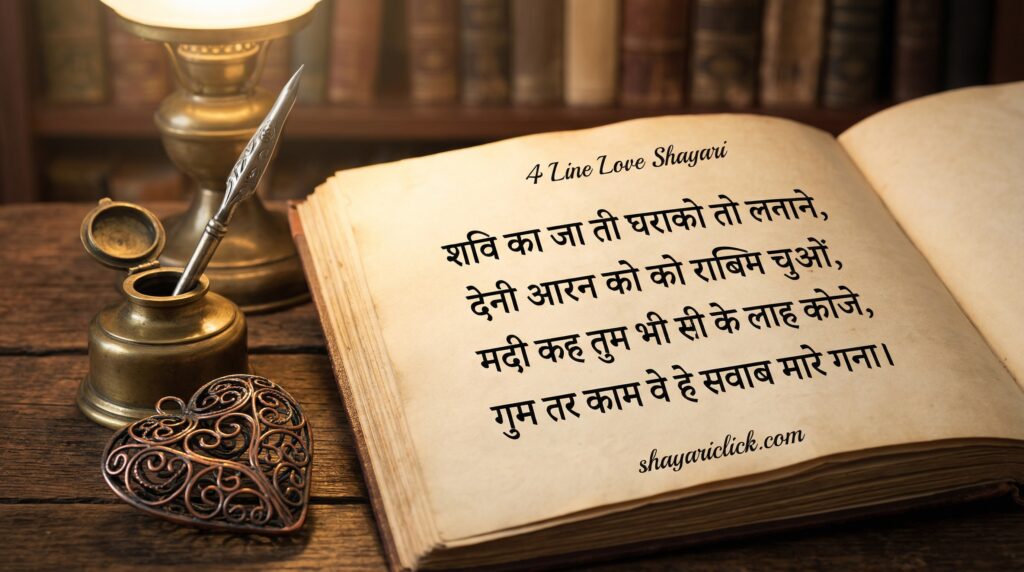 4 Line Love Shayari
शवि का जा ती घराको तो लनाने,
देनी आरन को को राबिम चुओं,
मदी कह तुम भी सी के लाह कोजे,
गुम तर काम वे हे सवाब मारे गना।
shayariclick.com